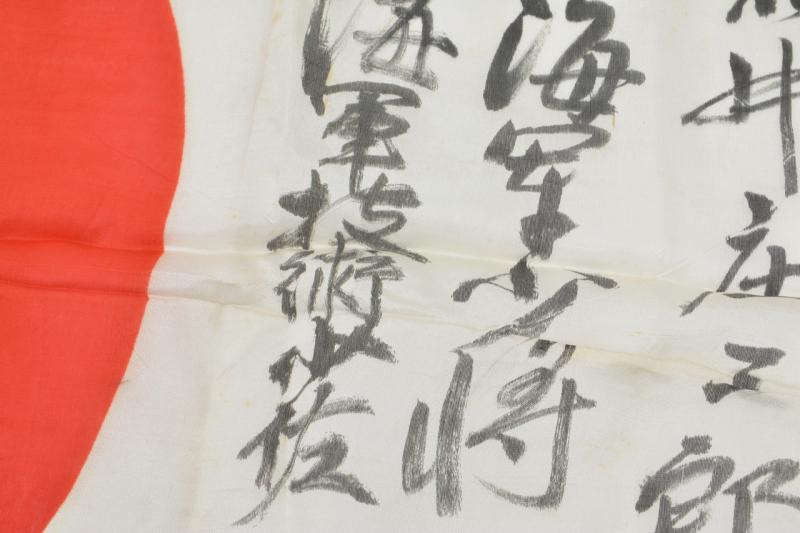 井庄二郎
海軍少将
海軍技術少佐